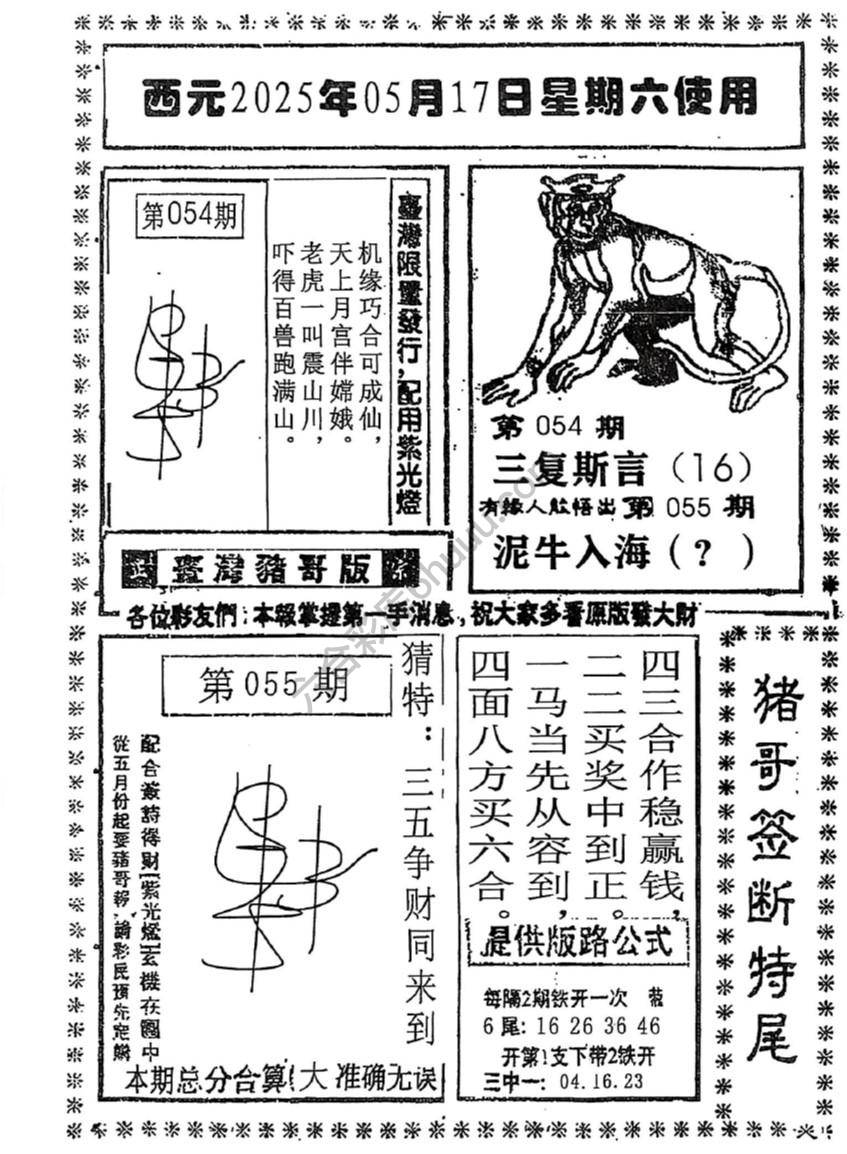 西元2025年05月17日星期六使用
第054期
臺灣限量發行,配用紫光燈
机缘巧合可成仙,
天上月宫伴嫦娥。
老虎一叫震山川,
吓得百兽跑满山。
臺灣豬哥版
第 054 期
三复斯言（16）
有緣人能悟出 第 055 期
泥牛入海（?）
各位彩友們:本報掌握第一手消息,祝大家多看原版發大財
第 055 期
猜特：三五争财同来到
配合簽詩得財[紫光燈]玄機在圖中
從五月份起要豬哥報 請彩民預先定購
本期总分合算(大 准确无误
四三合作稳赢钱,
二二买奖中到正。
一马当先从容到,
四面八方买六合。
提供版路公式
每隔2期铁开一次
6尾: 16 26 36 46
开第1支下带2铁开
三中一: 04.16.23
猪哥签断特尾
六合彩库6huuu.com